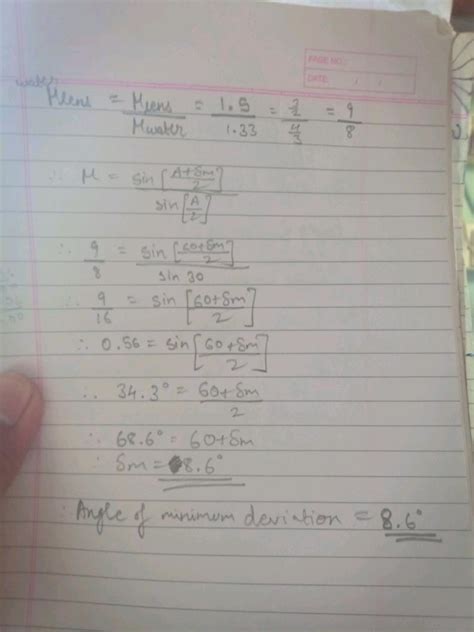 PAGE NO.:
DATE: / /
water
μlens = μlens / μwater = 1.5 / 1.33 = 3/2 / 4/3 = 9/8
∴ μ = sin[A+δm/2] / sin[A/2]
∴ 9/8 = sin[60+δm/2] / sin 30
∴ 9/16 = sin[60+δm/2]
∴ 0.56 = sin[60+δm/2]
∴ 34.3° = 60+δm/2
∴ 68.6° = 60+δm
∴ δm = 8.6°
∴ Angle of minimum deviation = 8.6°